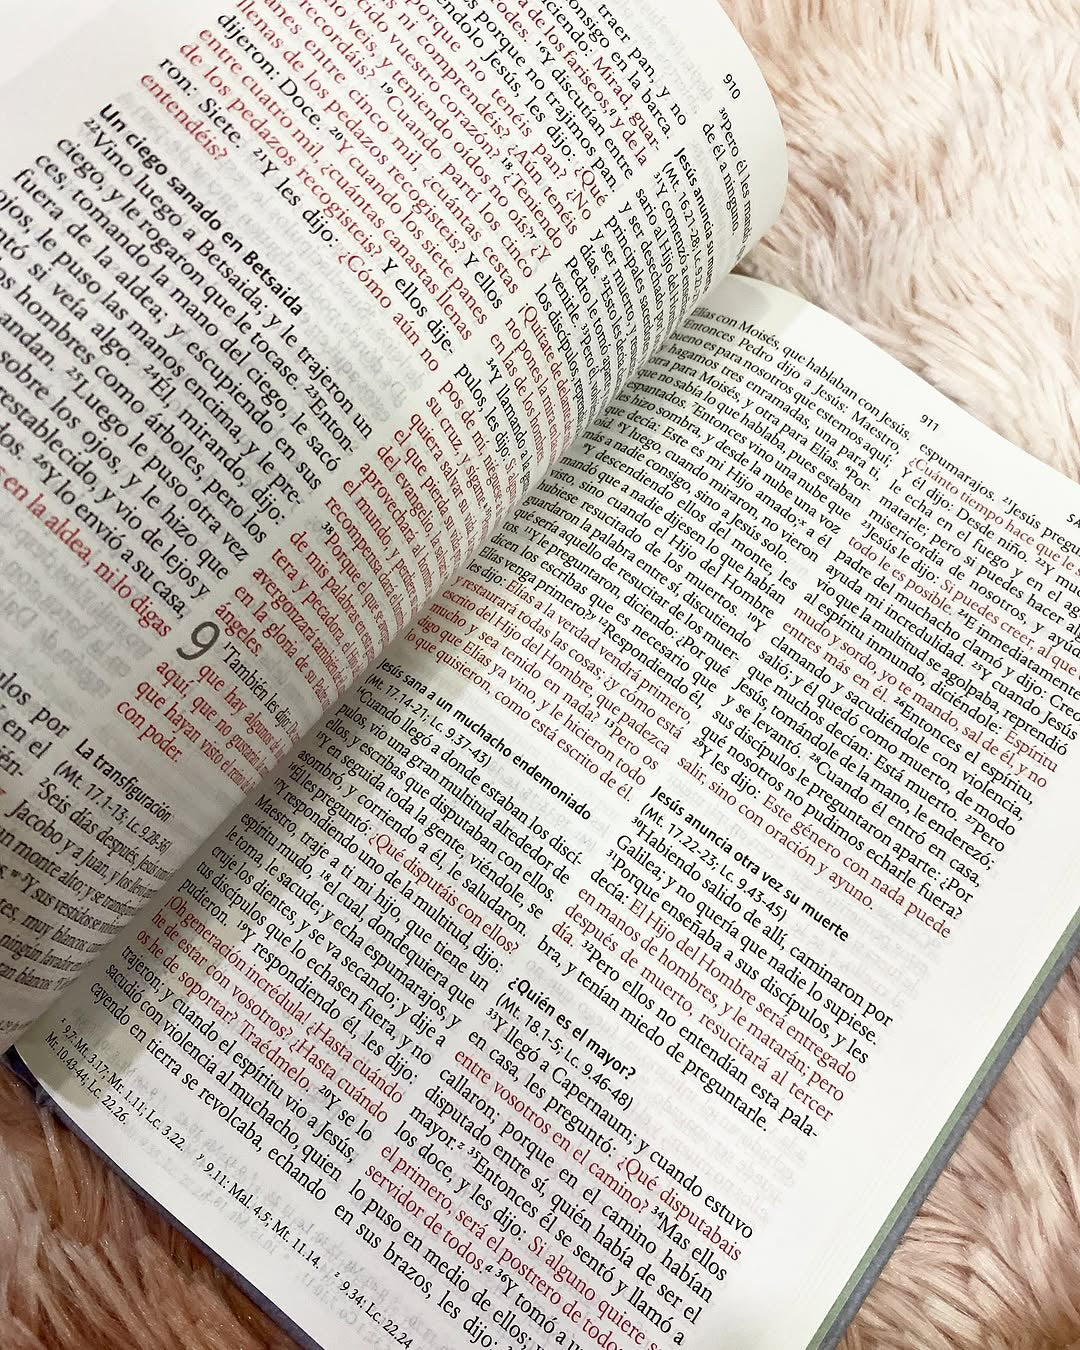 910
traer pan, y no
consigo en la barca.
ciendo: Mirad, guar-
de los fariseos,q y de la
odes. 16Y discutían entre
es porque no trajimos pan.
éndolo Jesús, les dijo: ¿Qué
porque no tenéis pan? ¿No
is ni comprendéis? ¿Aún tenéis
cido vuestro corazón? 18¿Teniendo
no veis, y teniendo oídos no oís?r ¿Y
recordáis? 19Cuando partí los cinco
panes entre cinco mil, ¿cuántas cestas
llenas de los pedazos recogisteis? Y ellos
dijeron: Doce. 20Y cuando los siete panes
entre cuatro mil, ¿cuántas canastas llenas
de los pedazos recogisteis? Y ellos dije-
ron: Siete. 21Y les dijo: ¿Cómo aún no
entendéis?
Un ciego sanado en Betsaida
22Vino luego a Betsaida; y le trajeron un
ciego, y le rogaron que le tocase. 23Enton-
ces, tomando la mano del ciego, le sacó
fuera de la aldea; y escupiendo en sus
ojos, le puso las manos encima, y le pre-
ntó si veía algo. 24Él, mirando, dijo:
los hombres como árboles, pero los
andan. 25Luego le puso otra vez
sobre los ojos, y le hizo que
restablecido, y vio de lejos y
dos. 26Y lo envió a su casa,
en la aldea, ni lo digas
30Pero él les mandó
de él a ninguno.
Jesús anuncia su muerte
(Mt. 16.21-28; Lc. 9.22-27)
31Y comenzó a
sario al Hijo del
y ser desechado
principales sacer
y ser muerto, y
días. 32Esto les decía
Pedro le tomó aparte
venirle. 33Pero él,
los discípulos,
¡Quítate de delante
no pones la mira en
en las de los hombres
34Y llamando a la
pulos, les dijo: Si
pos de mí, niéguese
su cruz, y sígame.
quiera salvar su vida
el que pierda su vida
del evangelio,
aprovechará al hombre
el mundo, y perdiere
recompensa dará el
38Porque el que se
de mis palabras en
tera y pecadora, el Hijo
avergonzará también de
en la gloria de su Padre
ángeles.
9 1También les dijo: De
que hay algunos de
aquí, que no gustarán
que hayan visto el reino
con poder.
La transfiguración
(Mt. 17.1-13; Lc. 9.28-36)
2Seis días después, Jesús
Jacobo y a Juan, y los llevó
un monte alto; y se transfiguró
3Y sus vestidos se
tes, muy blancos, como
ningún lavador
911
Elías con Moisés, que hablaban con Jesús.
5Entonces Pedro dijo a Jesús: Maestro,
bueno es para nosotros que estemos aquí;
y hagamos tres enramadas, una para ti,
otra para Moisés, y otra para Elías. 6Por-
que no sabía lo que hablaba, pues estaban
espantados. 7Entonces vino una nube que
les hizo sombra, y desde la nube una voz
que decía: Este es mi Hijo amado;x a él
oíd. 8Y luego, cuando miraron, no vieron
más a nadie consigo, sino a Jesús solo.
9Y descendiendo ellos del monte, les
mandó que a nadie dijesen lo que habían
visto, sino cuando el Hijo del Hombre
hubiese resucitado de los muertos. 10Y
guardaron la palabra entre sí, discutiendo
qué sería aquello de resucitar de los muer-
tos. 11Y le preguntaron, diciendo: ¿Por qué
dicen los escribas que es necesario que
Elías venga primero?y 12Respondiendo él,
les dijo: Elías a la verdad vendrá primero,
y restaurará todas las cosas; ¿y cómo está
escrito del Hijo del Hombre, que padezca
mucho y sea tenido en nada? 13Pero os
digo que Elías ya vino, y le hicieron todo
lo que quisieron, como está escrito de él.
Jesús sana a un muchacho endemoniado
(Mt. 17.14-21; Lc. 9.37-43)
14Cuando llegó a donde estaban los discí-
pulos, vio una gran multitud alrededor de
ellos, y escribas que disputaban con ellos.
15Y en seguida toda la gente, viéndole, se
asombró, y corriendo a él, le saludaron.
16Él les preguntó: ¿Qué disputáis con ellos?
17Y respondiendo uno de la multitud, dijo:
Maestro, traje a ti mi hijo, que tiene un
espíritu mudo, 18el cual, dondequiera que
le toma, le sacude; y echa espumarajos, y
cruje los dientes, y se va secando; y dije a
tus discípulos que lo echasen fuera, y no
pudieron. 19Y respondiendo él, les dijo:
¡Oh generación incrédula! ¿Hasta cuándo
he de estar con vosotros? ¿Hasta cuándo
os he de soportar? Traédmelo. 20Y se lo
trajeron; y cuando el espíritu vio a Jesús,
sacudió con violencia al muchacho, quien
cayendo en tierra se revolcaba, echando
espumarajos. 21Jesús pregun
¿Cuánto tiempo hace que le s
Y él dijo: Desde niño. 22Y muc
le echa en el fuego y en el ag
matarle; pero si puedes hacer al
misericordia de nosotros, y ayúd
23Jesús le dijo: Si puedes creer, al que
todo le es posible. 24E inmediatamente
padre del muchacho clamó y dijo: Creo
ayuda mi incredulidad. 25Y cuando Jesús
vio que la multitud se agolpaba, reprendió
al espíritu inmundo, diciéndole: Espíritu
mudo y sordo, yo te mando, sal de él, y no
entres más en él. 26Entonces el espíritu,
clamando y sacudiéndole con violencia,
salió; y él quedó como muerto, de modo
que muchos decían: Está muerto. 27Pero
Jesús, tomándole de la mano, le enderezó;
y se levantó. 28Cuando él entró en casa,
sus discípulos le preguntaron aparte: ¿Por
qué nosotros no pudimos echarle fuera?
29Y les dijo: Este género con nada puede
salir, sino con oración y ayuno.
Jesús anuncia otra vez su muerte
(Mt. 17.22-23; Lc. 9.43-45)
30Habiendo salido de allí, caminaron por
Galilea; y no quería que nadie lo supiese.
31Porque enseñaba a sus discípulos, y les
decía: El Hijo del Hombre será entregado
en manos de hombres, y le matarán; pero
después de muerto, resucitará al tercer
día. 32Pero ellos no entendían esta pala-
bra, y tenían miedo de preguntarle.
¿Quién es el mayor?
(Mt. 18.1-5; Lc. 9.46-48)
33Y llegó a Capernaum; y cuando estuvo
en casa, les preguntó: ¿Qué disputabais
entre vosotros en el camino? 34Mas ellos
callaron; porque en el camino habían
disputado entre sí, quién había de ser el
mayor.z 35Entonces él se sentó y llamó a
los doce, y les dijo: Si alguno quiere s
el primero, será el postrero de todos
servidor de todos.a 36Y tomó a u
lo puso en medio de ellos;
en sus brazos, les dijo:
x 9.7: Mt. 3.17; Mr. 1.11; Lc. 3.22. y 9.11: Mal. 4.5; Mt. 11.14. z 9.34: Lc. 22.24
Mt. 10.43-44; Lc. 22.26.